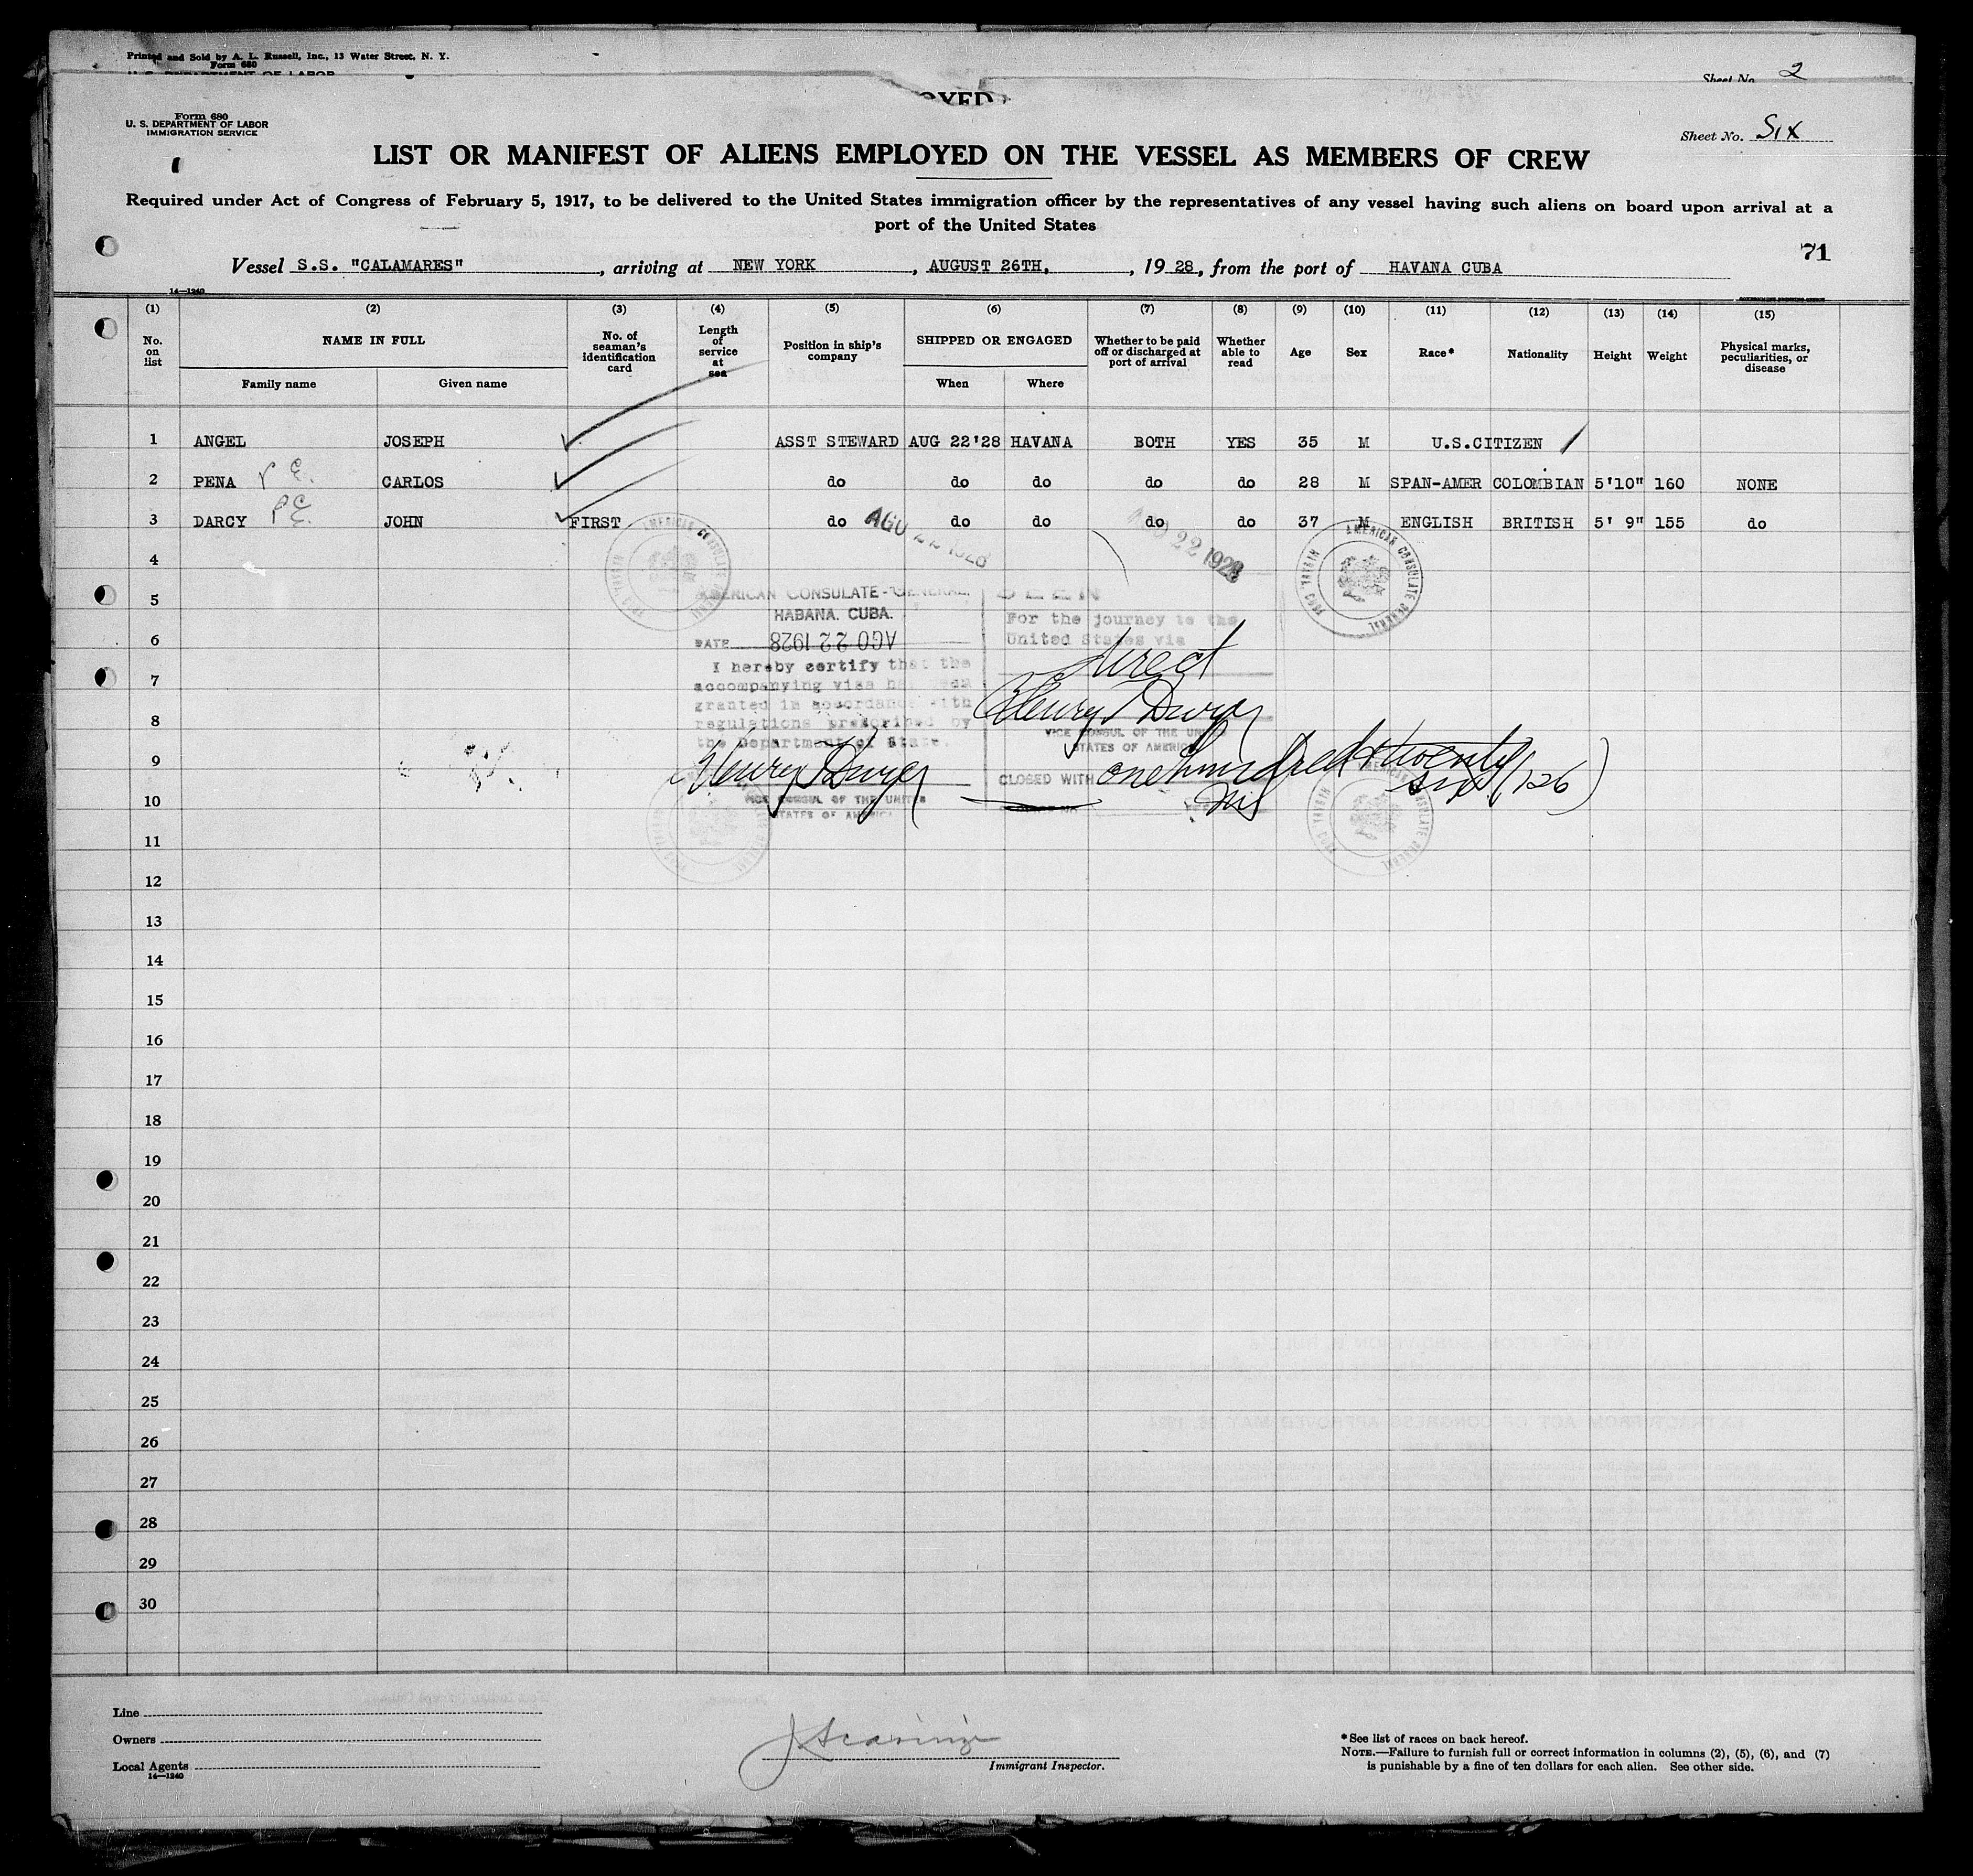 Printed and Sold by A. L. Russell, Inc., 13 Water Street, N. Y.
Form 680
U. S. DEPARTMENT OF LABOR
Sheet No. 2
OYED
Form 680
U. S. DEPARTMENT OF LABOR
IMMIGRATION SERVICE
Sheet No. Six
LIST OR MANIFEST OF ALIENS EMPLOYED ON THE VESSEL AS MEMBERS OF CREW
Required under Act of Congress of February 5, 1917, to be delivered to the United States immigration officer by the representatives of any vessel having such aliens on board upon arrival at a
port of the United States
71
Vessel S.S. "CALAMARES", arriving at NEW YORK, AUGUST 26TH, 1928, from the port of HAVANA CUBA
14—1240
(1) (2) (3) (4) (5) (6) (7) (8) (9) (10) (11) (12) (13) (14) (15)
No. on list
NAME IN FULL
Family name Given name
No. of seaman's identification card
Length of service at sea
Position in ship's company
SHIPPED OR ENGAGED
When Where
Whether to be paid off or discharged at port of arrival
Whether able to read
Age
Sex
Race*
Nationality
Height
Weight
Physical marks, peculiarities, or disease
1 ANGEL JOSEPH ASST STEWARD AUG 22'28 HAVANA BOTH YES 35 M U.S.CITIZEN
2 PENA CARLOS do do do do do 28 M SPAN-AMER COLOMBIAN 5'10" 160 NONE
3 DARCY JOHN FIRST do do do do do 37 M ENGLISH BRITISH 5' 9" 155 do
AGO 22 1928
22 1928
AMERICAN CONSULATE GENERAL
AMERICAN CONSULATE GENERAL
4
5
6
7
8
9
10
AMERICAN CONSULATE-GENERAL.
HABANA. CUBA.
DATE AGO 22 1928
I hereby certify that the
accompanying visa has been
granted in accordance with
regulations prescribed by
the Department of State.
Henry Dwyer
VICE CONSUL OF THE UNITED
STATES OF AMERICA
SEEN
For the journey to the
United States via
direct
Henry Dwyer
VICE CONSUL OF THE UNITED
STATES OF AMERICA
CLOSED WITH one hundred & twenty
six (126)
11
12
13
14
15
16
17
18
19
20
21
22
23
24
25
26
27
28
29
30
Line
Owners
Local Agents
14—1240
Immigrant Inspector.
*See list of races on back hereof.
NOTE.—Failure to furnish full or correct information in columns (2), (5), (6), and (7)
is punishable by a fine of ten dollars for each alien. See other side.